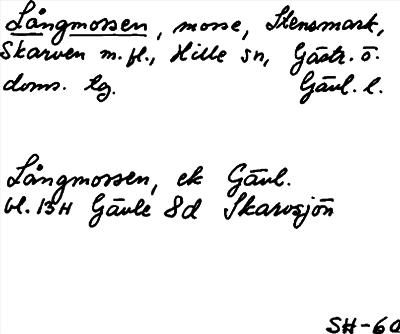 Långmossen, mosse, Stensmark,
Skarven m. fl., Hille sn, Gästr. ö.
doms. tg. Gävl. l.
Långmossen, ek Gävl.
bl. 13H Gävle 8d Skarvsjön
SH-60